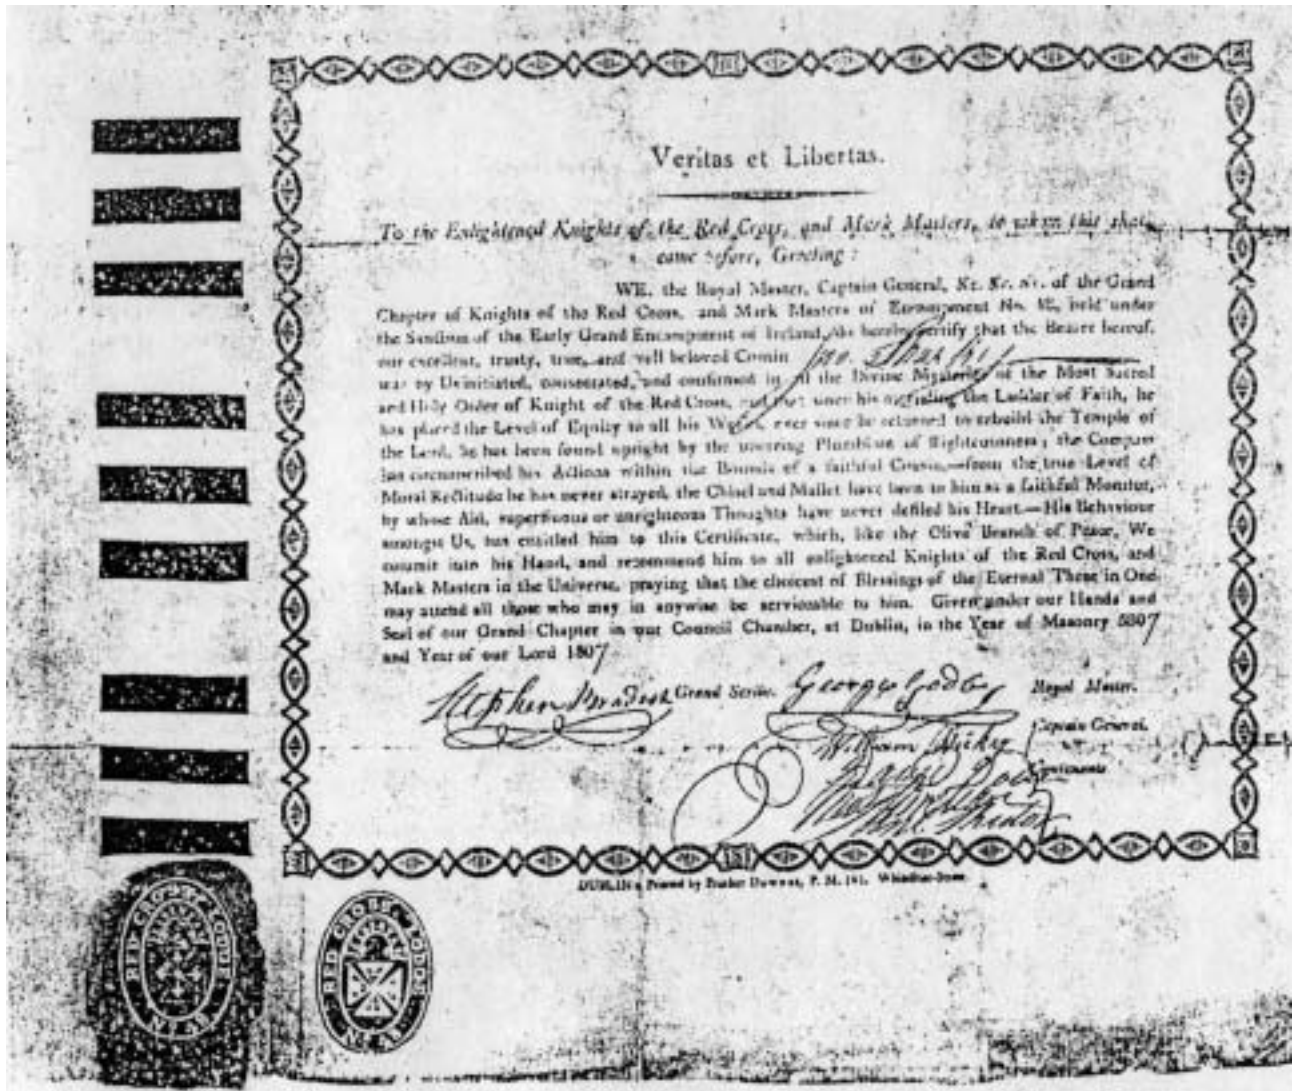 Veritas et Libertas.
To the Enlightened Knights of the Red Cross, and Mark Masters, to whom this shall
came before, Greeting:
WE, the Royal Master, Captain General, &c. &c. &c. of the Grand
Chapter of Knights of the Red Cross, and Mark Masters of Encampment No. held under
the Sanction of the Early Grand Encampment of Ireland, do hereby certify that the Bearer hereof,
our excellent, trusty, true, and well beloved Cousin
was by Us initiated, consecrated, and confirmed in all the Divine Mysteries of the Most Sacred
and Holy Order of Knight of the Red Cross, and that since his ascending the Ladder of Faith, he
has placed the Level of Equity to all his Works, ever since he returned to rebuild the Temple of
the Lord, he has been found upright by the unerring Plumbline of Righteousness; the Compass
has circumscribed his Actions within the Bounds of a faithful Cousin,—from the true Level of
Moral Rectitude he has never strayed, the Chisel and Mallet have been to him as a faithful Monitor,
by whose Aid, superfluous or unrighteous Thoughts have never defiled his Heart.—His Behaviour
amongst Us, has entitled him to this Certificate, which, like the Olive Branch of Peace, We
commit into his Hand, and recommend him to all enlightened Knights of the Red Cross, and
Mark Masters in the Universe, praying that the choicest of Blessings of the Eternal Three in One
may attend all those who may in anywise be serviceable to him. Given under our Hands and
Seal of our Grand Chapter in our Council Chamber, at Dublin, in the Year of Masonry 5807
and Year of our Lord 1807
Stephen Grand Scribe. George Godby Royal Master.
William Hickey Captain General.
Lieutenants
DUBLIN: Printed by Downes, P. M. 141.
RED CROSS LODGE
RED CROSS LODGE